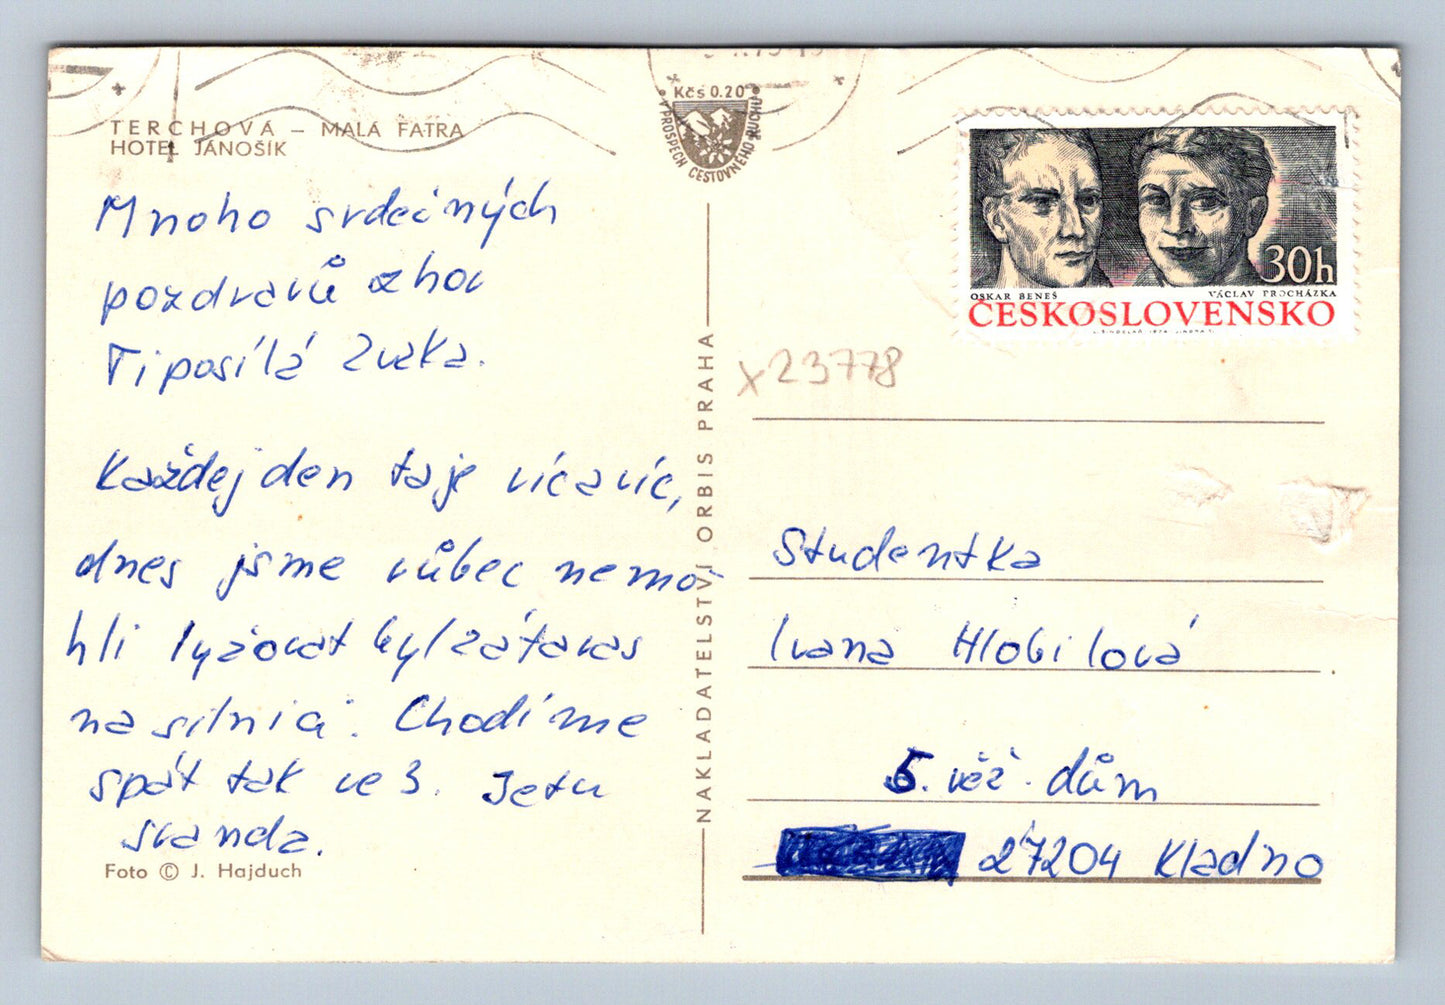 TERCHOVÁ – MALÁ FATRA
HOTEL JÁNOŠÍK
Kčs 0.20
V PROSPĚCH CESTOVNÉHO RUCHU
Mnoho srdečných
pozdravů z hor
Ti posílá
Každej den taje víc a víc,
dnes jsme vůbec nemo-
hli lyžovat byl zátaras
na silnici. Chodíme
spát tak ve 3. Je tu
sranda.
Foto © J. Hajduch
NAKLADATELSTVÍ ORBIS PRAHA
30h
OSKAR BENEŠ
VÁCLAV PROCHÁZKA
ČESKOSLOVENSKO
x23778
Studentka
Ivana Hlobilová
5. věž. dům
27204 Kladno